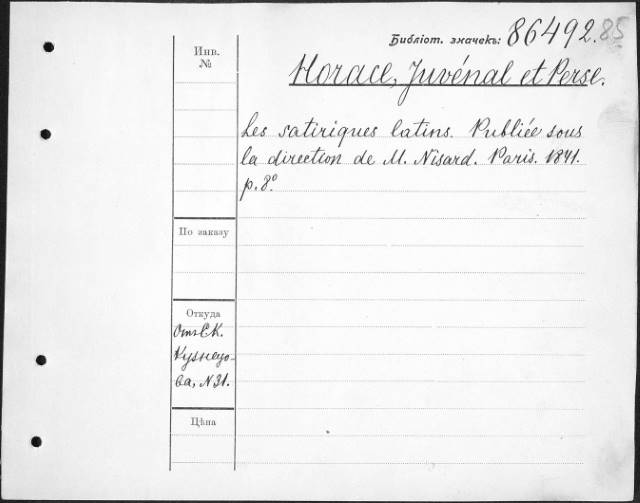 Библіот. значекъ: 86492.85
Инв.
№
Horace, Juvénal et Perse.
Les satiriques latins. Publiée sous
la direction de M. Nisard. Paris. 1841.
p. 8º
По заказу
Откуда
Отъ С.К.
Кузнецо-
ва, N 31.
Цѣна